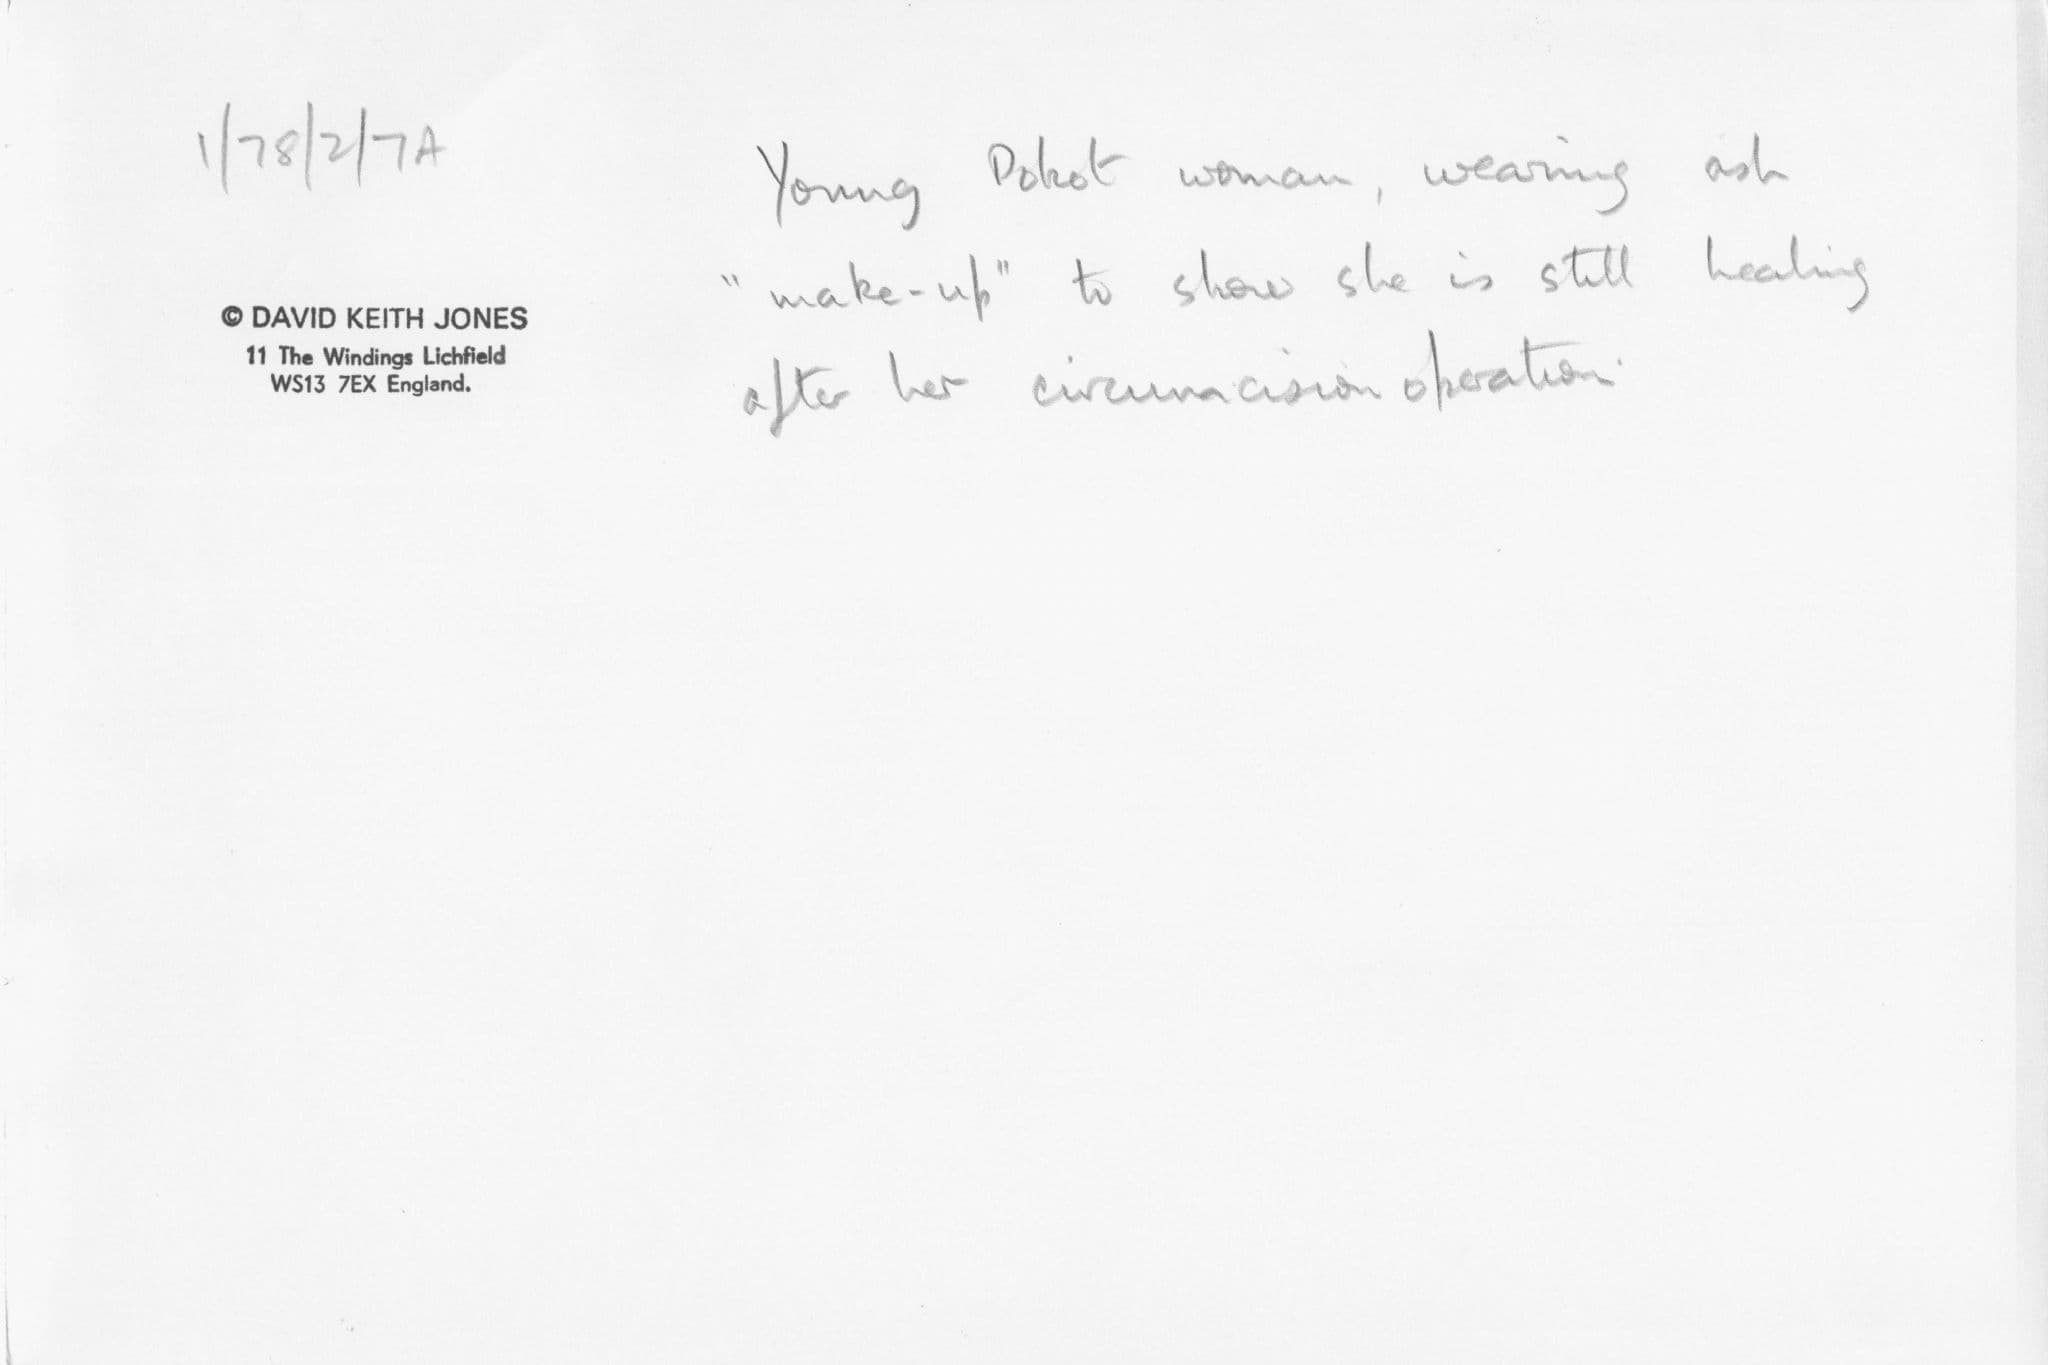 1/78/2/7A
© DAVID KEITH JONES
11 The Windings Lichfield
WS13 7EX England.
Young Pokot woman, wearing ash
"make-up" to show she is still healing
after her circumcision operation.